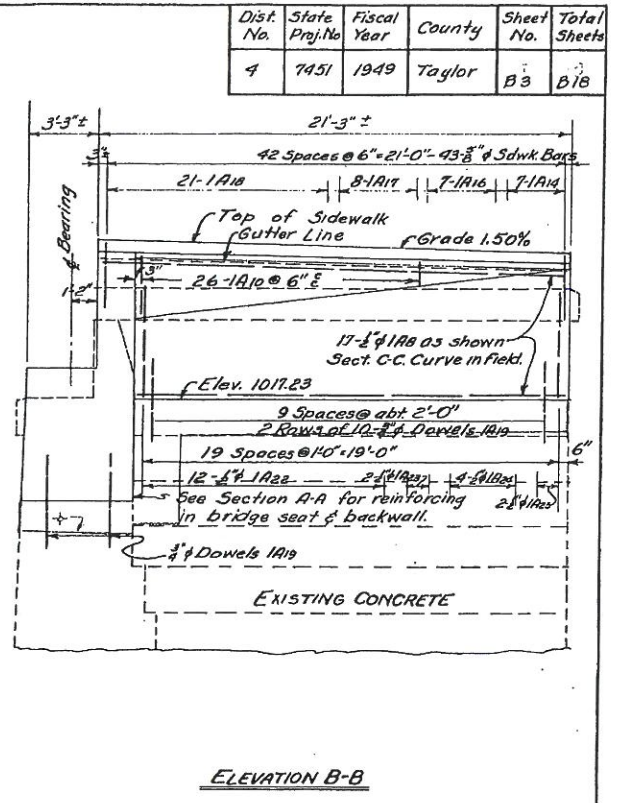 Dist. No. State Proj. No Fiscal Year County Sheet No. Total Sheets
4 7451 1949 Taylor B3 B18
3'-3"± 21'-3"±
3"± 42 Spaces @ 6"=21'-0"-43-⅝"ϕ Sdwk. Bars
21-1A18 8-1A17 7-1A16 7-1A14
℄ Bearing
Top of Sidewalk
Gutter Line Grade 1.50%
3"
26-1A10 @ 6" ℄
1'-2"
17-½"ϕ 1A8 as shown
Sect. C-C. Curve in field.
Elev. 1017.23
9 Spaces @ abt. 2'-0"
2 Rows of 10-¾"ϕ Dowels 1A19
19 Spaces @ 1'-0"=19'-0" 6"
12-½"ϕ 1A22 2-½"ϕ 1A23 4-½"ϕ 1A24
2-½"ϕ 1A25
See Section A-A for reinforcing
in bridge seat & backwall.
¾"ϕ Dowels 1A19
EXISTING CONCRETE
ELEVATION B-B